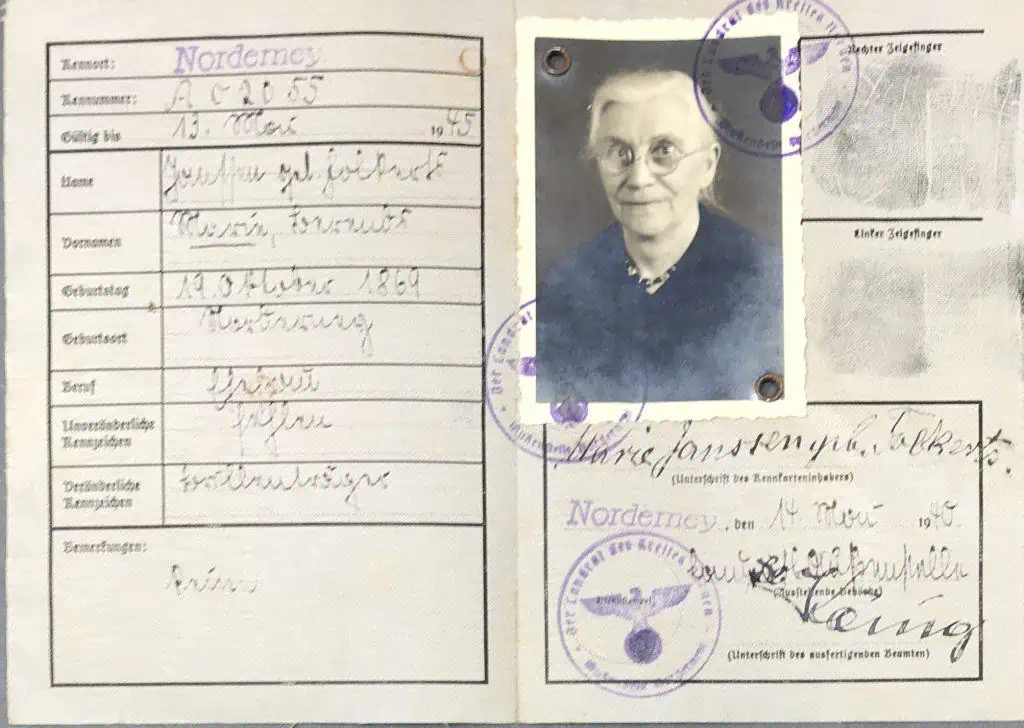 Kennort: Norderney
Kennummer: A 02055
Gültig bis 13. Mai 1945
Name Janssen geb. Folkerts
Vornamen Marie, Berends
Geburtstag 19. Oktober 1869
Geburtsort Norderney
Beruf
Unveränderliche Kennzeichen fehlen
Veränderliche Kennzeichen Brillenträger
Bemerkungen:
keine
Der Landrat des Kreises Norden
Rechter Zeigefinger
Linker Zeigefinger
Der Landrat
Marie Janssen gb. Folkerts.
(Unterschrift des Kennkarteninhabers)
Norderney, den 14. Mai 1940.
(Ausstellende Behörde)
Dienststempel
Der Landrat des Kreises Norden
(Unterschrift des ausfertigenden Beamten)